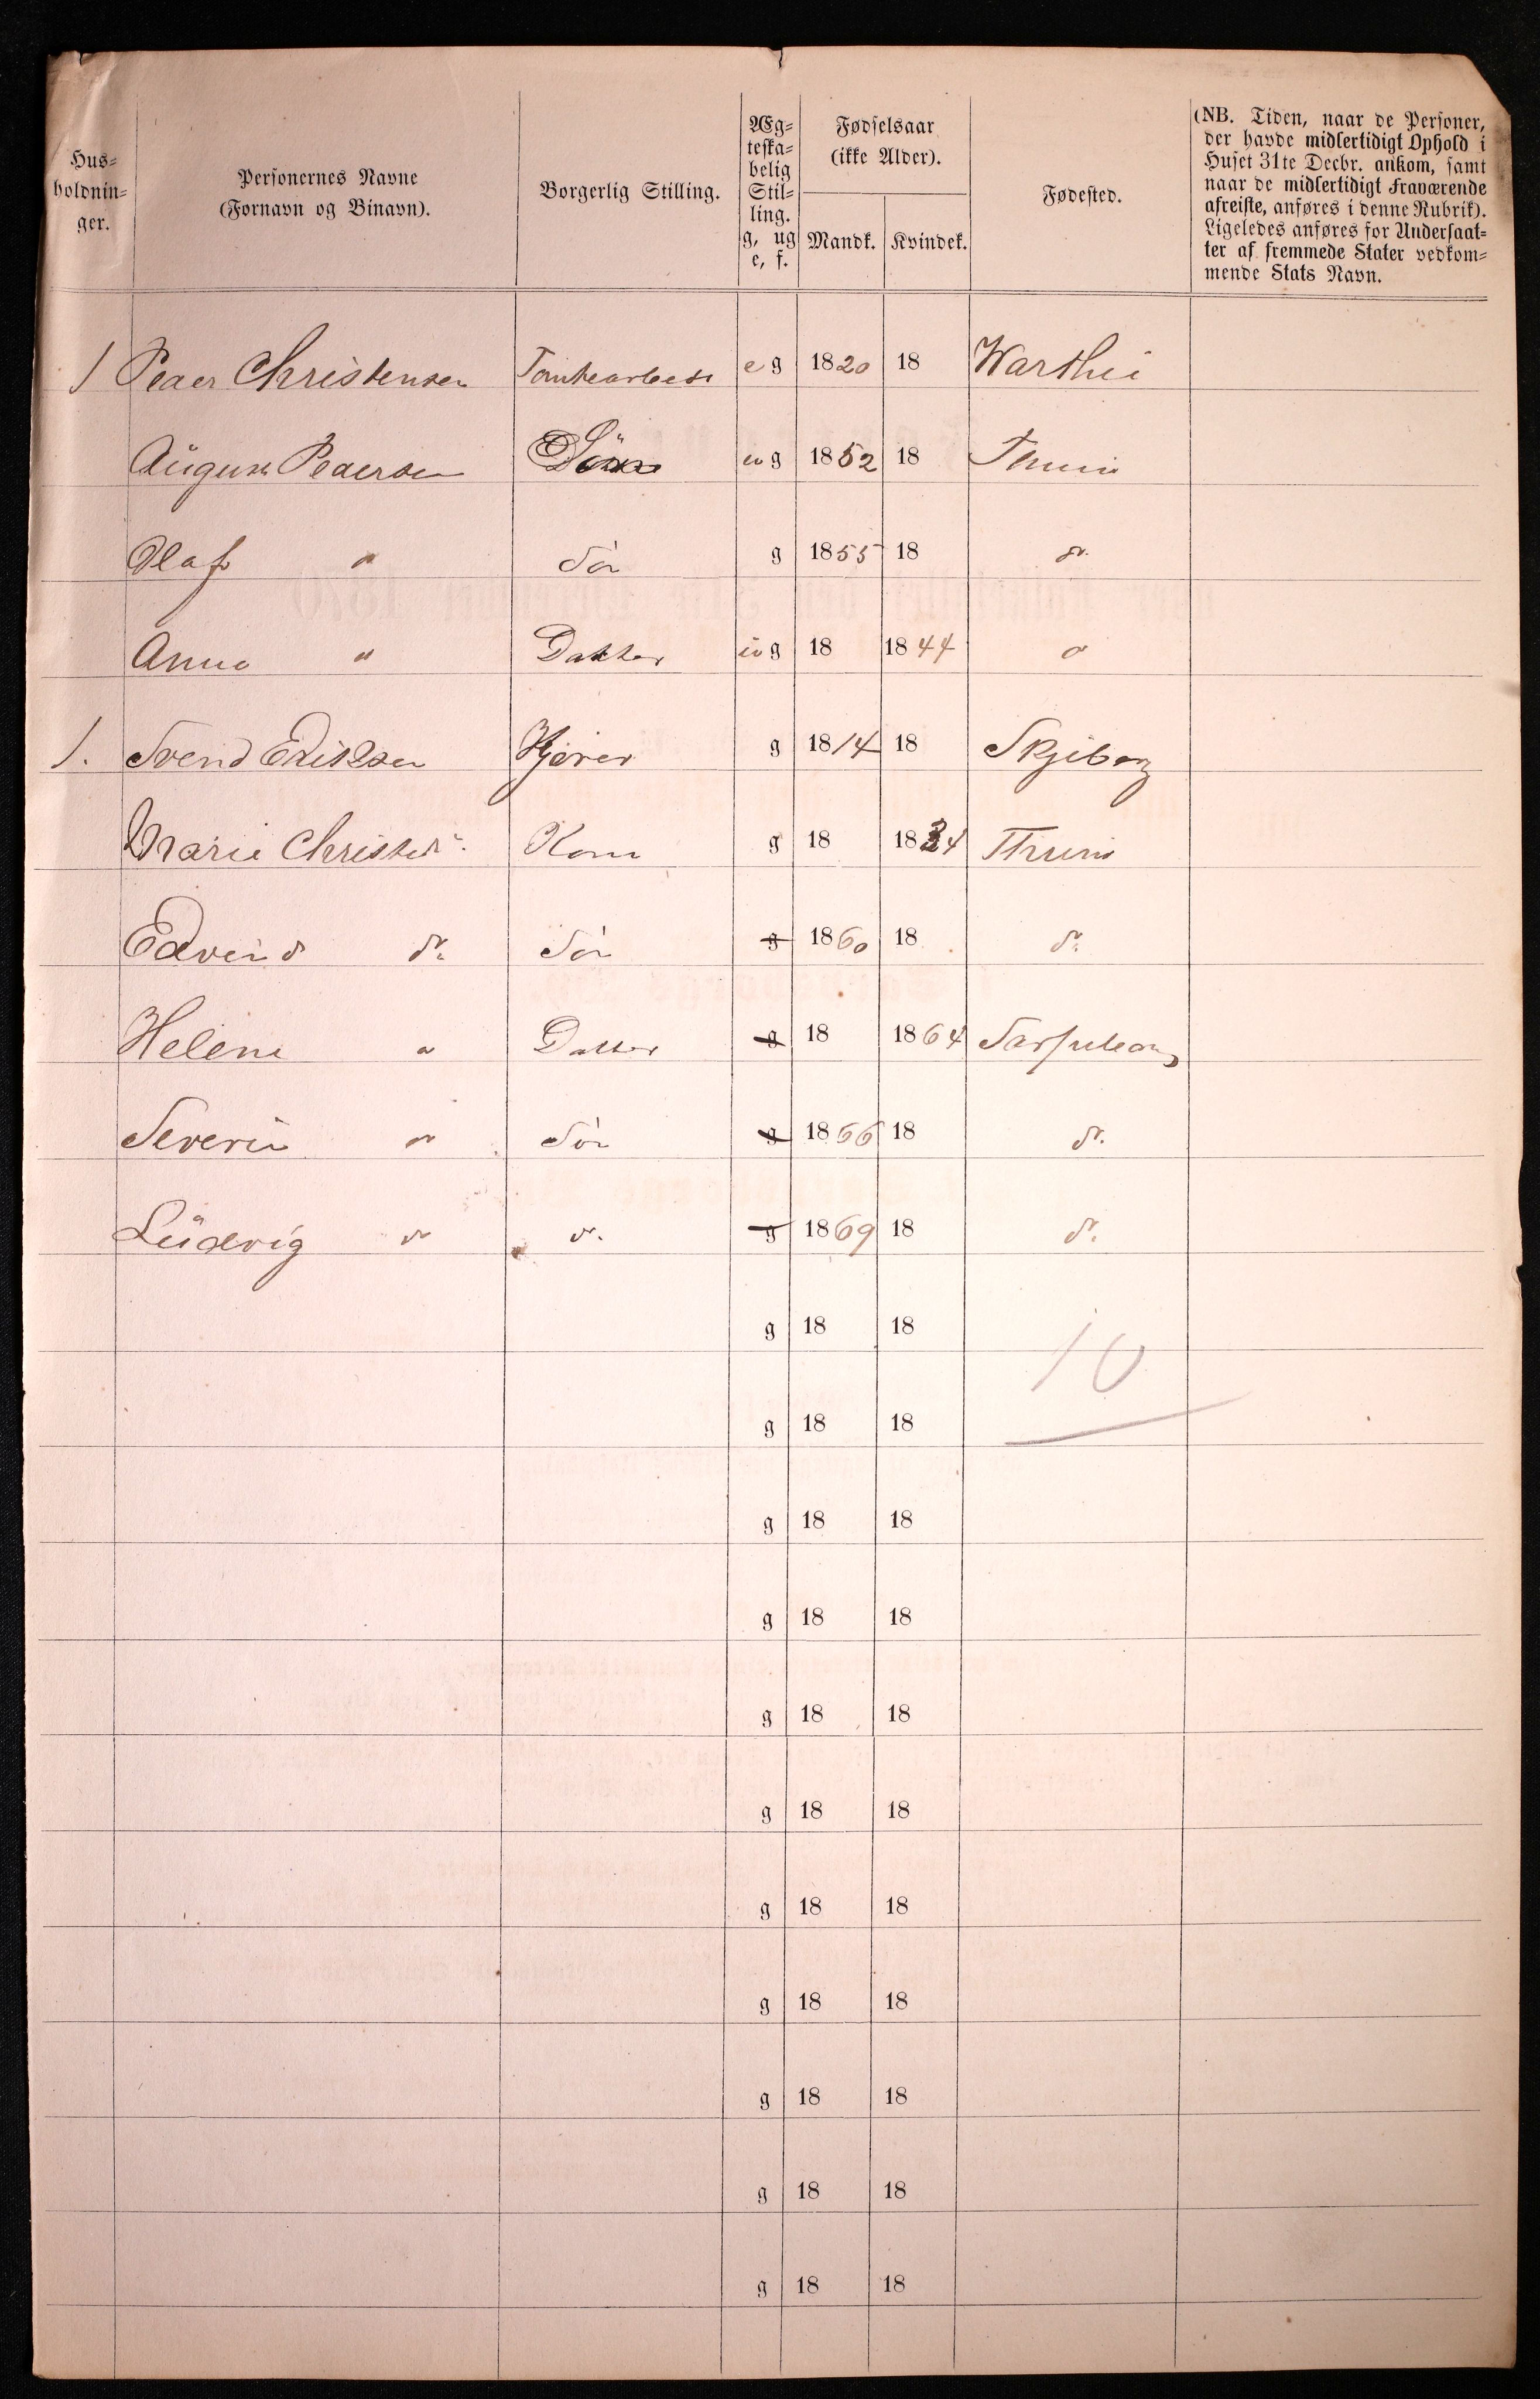 Hus=
holdnin=
ger.
Personernes Navne
(Fornavn og Binavn).
Borgerlig Stilling.
Æg=
teska=
belig
Stil=
ling.
g, ug
e, f.
Fødselsaar
(ikke Alder).
Mandk. Kvindek.
Fødested.
(NB. Tiden, naar de Personer,
der havde midlertidigt Ophold i
Huset 31te Decbr. ankom, samt
naar de midlertidigt Fraværende
afreiste, anføres i denne Rubrik).
Ligeledes anføres for Undersaat=
ter af fremmede Stater vedkom=
mende Stats Navn.
1 Peder Christensen e g 1820 18
August Pedersen Sön ug 1852 18 Thune
Olaf " Sön g 1855 18 do
Anna " Datter ug 18 1844 "
1. Svend Eriksen g 1814 18 Skjeberg
Marie Christens. Kone g 18 1834 Thune
Edvin d do Sön g 1860 18 do
Helene " Datter g 18 1864 Sarpsborg
Severin " Sön g 1866 18 do
Ludvig do do g 1869 18 do
g 18 18
10
g 18 18
g 18 18
g 18 18
g 18 18
g 18 18
g 18 18
g 18 18
g 18 18
g 18 18
g 18 18